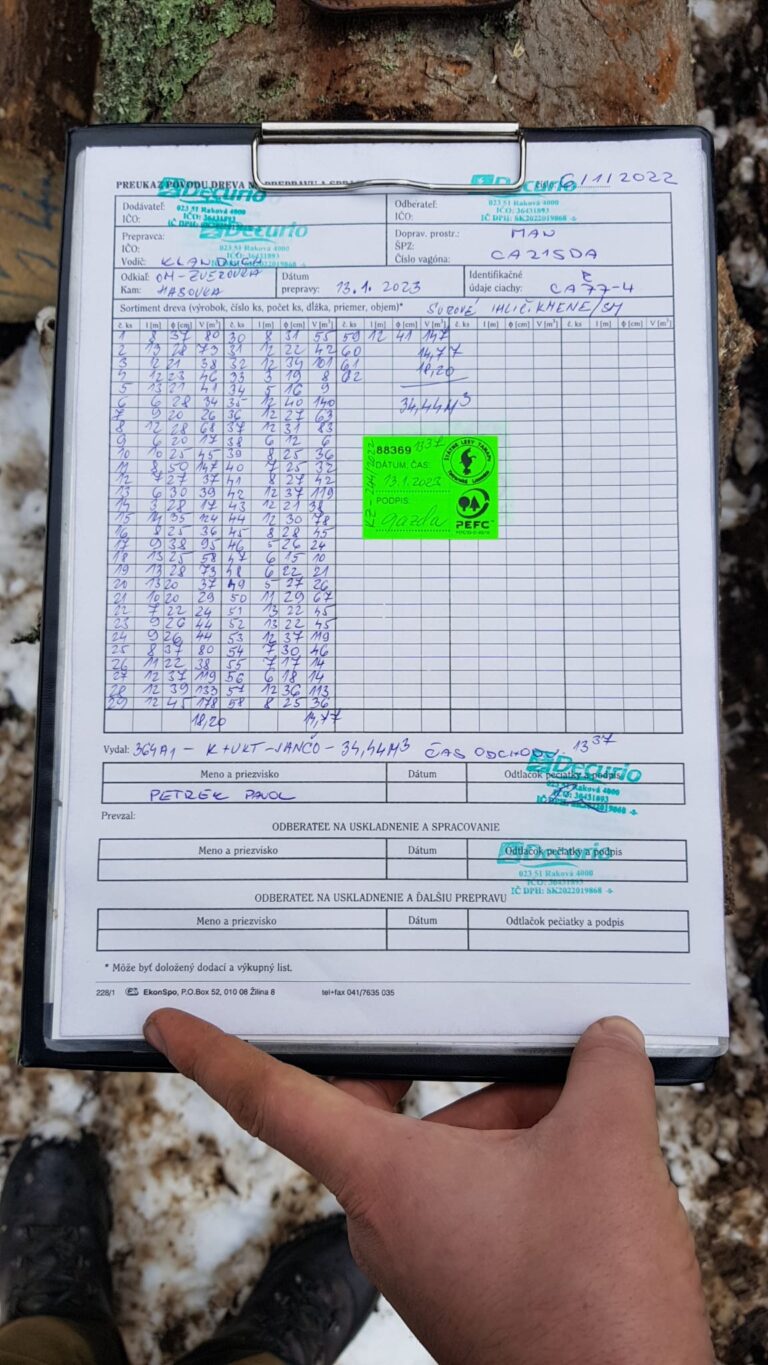 PREUKAZ POVODU DREVA NA PREPRAVU A
Decurio
023 51 Raková 4000
IČO: 36431893
IČ DPH: SK2022019868
6/11 2022
Dodávateľ:
IČO:
Odberateľ:
IČO:
Prepravca:
IČO:
Vodič: KLANDUCH
Doprav. prostr.: MAN
ŠPZ:
Číslo vagóna: CA215DA
Odkiaľ: OH-ZVEROVKA
Kam: HABOVKA
Dátum
prepravy: 13.1. 2023
Identifikačné
údaje ciachy: CA 77-4
Sortiment dreva (výrobok, číslo ks, počet ks, dĺžka, priemer, objem)* SUROVÉ IHLIČ. KMENE/SM
č. ks l [m] ϕ [cm] V [m³] č. ks l [m] ϕ [cm] V [m³] č. ks l [m] ϕ [cm] V [m³] č. ks l [m] ϕ [cm] V [m³]
1 8 37 80 30 8 31 55 59 12 41 147
2 13 28 73 31 12 22 42 60 14,77
3 2 21 38 32 12 34 101 61 18,20
4 12 23 46 33 3 19 8 62
5 13 21 41 34 5 16 9
6 6 28 34 35 12 40 140 34,44M³
7 9 20 26 36 12 27 63
8 12 28 68 37 12 31 83
9 6 20 17 38 6 12 6
10 10 25 45 39 8 25 36
11 8 50 147 40 7 25 32
12 7 27 37 41 8 27 42
13 6 30 39 42 12 37 119
14 3 28 17 43 12 21 38
15 14 35 124 44 12 30 78
16 8 25 36 45 8 28 45
17 9 38 95 46 5 26 24
18 13 25 58 47 6 15 10
19 13 28 73 48 6 22 21
20 13 20 37 49 5 27 26
21 10 20 29 50 11 29 67
22 7 22 24 51 13 22 45
23 9 26 44 52 13 22 45
24 9 26 44 53 12 37 119
25 8 37 80 54 7 30 46
26 11 22 38 55 7 17 14
27 12 37 119 56 6 18 14
28 12 39 133 57 12 36 113
29 12 45 178 58 8 25 36
18,20 14,77
88369 1337
DÁTUM, ČAS:
13.1.2023
PODPIS
Gazda
ŠTÁTNE LESY TANAPU
PEFC
Vydal: 364A1 - K+UKT-JANČO - 34,44M³ ČAS ODCHODU: 13 37
Meno a priezvisko Dátum Odtlačok pečiatky a podpis
PETREK PAVOL
Decurio
023 51 Raková 4000
IČO: 36431893
IČ DPH: SK2022019868
Prevzal:
ODBERATEĽ NA USKLADNENIE A SPRACOVANIE
Meno a priezvisko Dátum Odtlačok pečiatky a podpis
Decurio
023 51 Raková 4000
IČO: 36431893
IČ DPH: SK2022019868
ODBERATEĽ NA USKLADNENIE A ĎALŠIU PREPRAVU
Meno a priezvisko Dátum Odtlačok pečiatky a podpis
* Môže byť doložený dodací a výkupný list.
228/1 EkonSpo, P.O.Box 52, 010 08 Žilina 8 tel+fax 041/7635 035